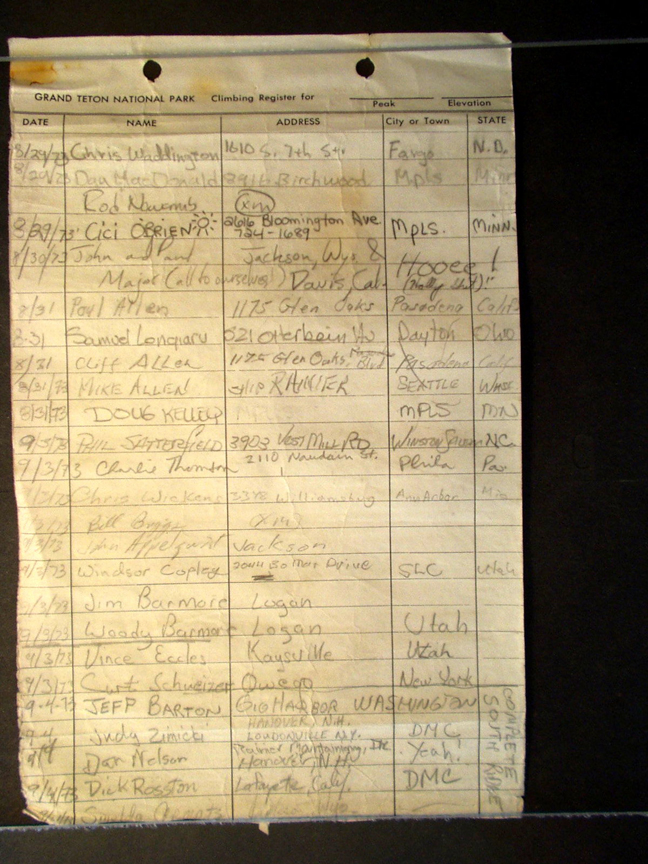 GRAND TETON NATIONAL PARK Climbing Register for
Peak Elevation
DATE NAME ADDRESS City or Town STATE
8/29/73 Chris Waddington 1610 S. 7th St. Fargo N.D.
8/29/73 Dag MacDonald 2916 Birchwood Mpls
Rod Newcomb
8/29/73 Cici OBRIEN 2616 Bloomington Ave. MpLS. MINN.
724-1689
8/30/73 John and Jackson, Wyo &
Major (all to ourselves!) Davis, Cal- Hooee!
8/31 Paul Allen 1175 Glen Oaks Pasadena Calif
8-31 Samuel 521 Otterbein Av Dayton Ohio
8/31 Cliff ALLEN 1175 Glen Oaks Blvd Pasadena Calif
8/31/73 MIKE ALLEN SHIP RAINIER SEATTLE WASH
8/31/73 DOUG KELLEY MPLS MN
9/3/73 PHIL SATTERFIELD 3903 VEST MILL RD WINSTON SALEM NC.
9/3/73 Charlie Thomson 2110 Naudain St. Phila Pa.
Chris Wickens Williamsburg Ann Arbor
Bill Briggs
John Appelquist Jackson
9/3/73 Windsor Copley Drive SLC Utah
9/3/73 Jim Barmore Logan
9/3/73 Woody Barmore Logan Utah
9/3/73 Vince Eccles Kaysville Utah
9/3/73 Curt Schweizer Owego New York
9-4-73 JEFF BARTON GIG HARBOR WASHINGTON
HANOVER, N.H.
9/4 Judy Zimicki LOUDONVILLE N.Y. DMC
9/4 Dan Nelson Hanover, N.H. Yeah!
9/4/73 Dick Rosston Lafayette, Calif. DMC
COMPLETE
SOUTH RIDGE